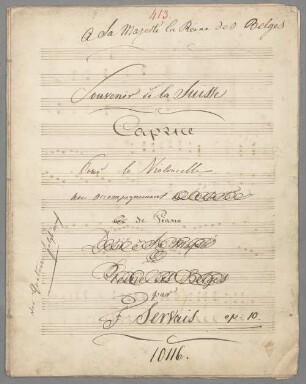 413.
A Sa Majesté la Reine des Belges
Souvenir de la Suisse
Caprice
Pour le Violoncelle
avec accompagnement
de Piano
par
F Servais op. 10
10116.